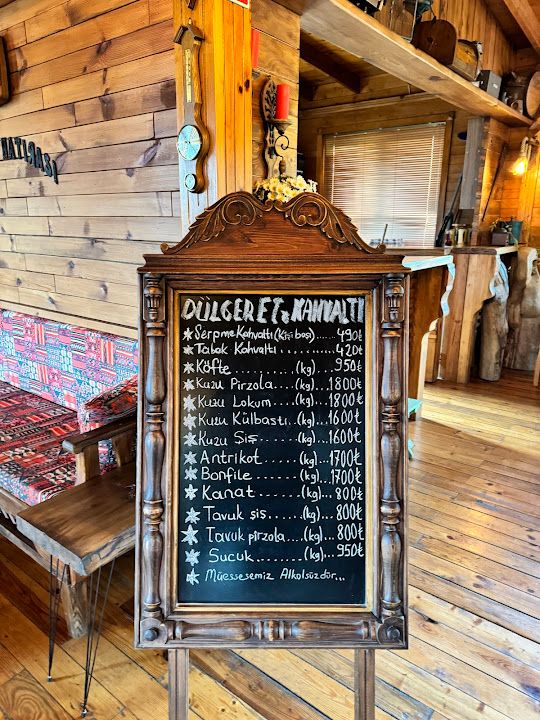 HATIRASI
DÜLGER ET & KAHVALTI
Serpme Kahvaltı (Kişi başı)......490₺
Tabak Kahvaltı ............420₺
Köfte ............(kg)...950₺
Kuzu Pirzola.......(kg)...1800₺
Kuzu Lokum........(kg)...1800₺
Kuzu Külbastı......(kg)...1600₺
Kuzu Şiş..........(kg)...1600₺
Antrikot..........(kg)...1700₺
Bonfile...........(kg)...1700₺
Kanat............(kg)...800₺
Tavuk şiş.........(kg)...800₺
Tavuk pirzola......(kg)...800₺
Sucuk............(kg)...950₺
Müessesemiz Alkolsüzdür...